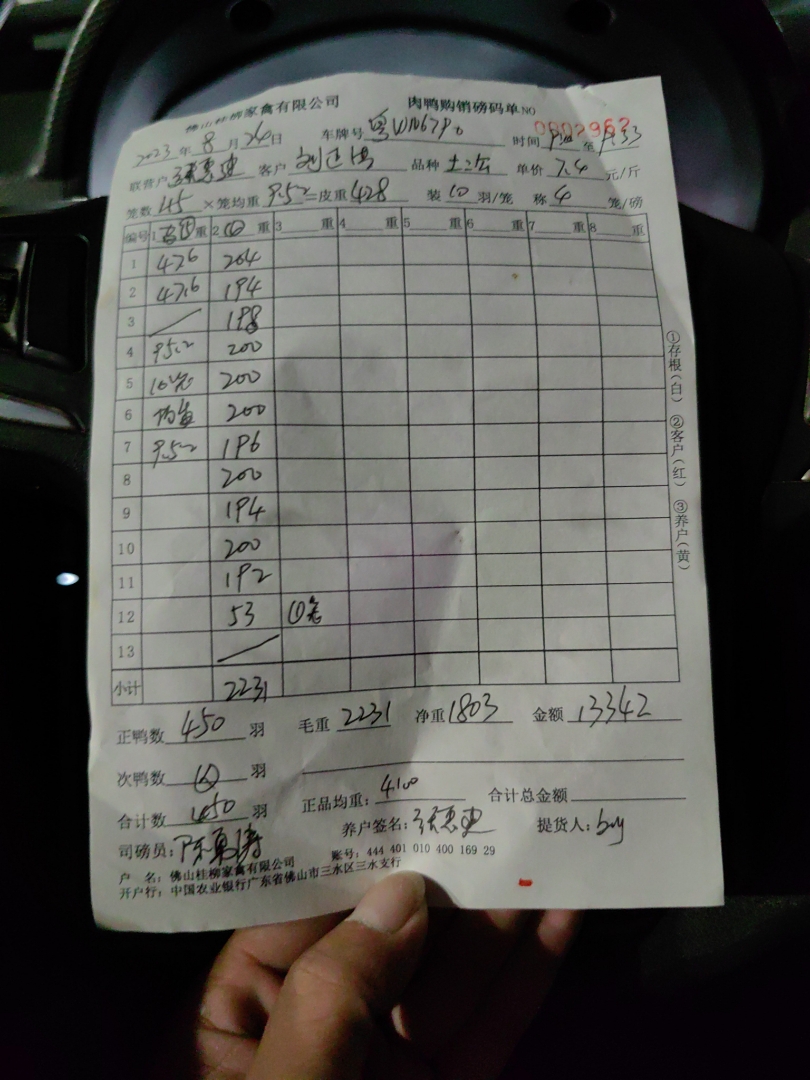 佛山桂柳家禽有限公司 肉鸭购销磅码单 NO 0802962
2023年 8月 24日 车牌号 粤 时间 至
联营户 客户 刘 品种 土二 单价 7.4 元/斤
笼数 45 ×笼均重 9.52 =皮重 428 装 10 羽/笼 称 4 笼/磅
编号 1 重 2 ④ 重 3 重 4 重 5 重 6 重 7 重 8 重
1 47.6 204
2 47.6 194
3 198
4 95.2 200
5 10笼 200
6 均重 200
7 9.52 196
8 200
9 194
10 200
11 192
12 53 ①笼
13
小计 2231
正鸭数 450 羽 毛重 2231 净重 1803 金额 13342
次鸭数 羽
合计数 450 羽 正品均重: 4.00 合计总金额
养户签名: 提货人:
司磅员: 陈
户 名: 佛山桂柳家禽有限公司 账号: 444 401 010 400 169 29
开户行: 中国农业银行广东省佛山市三水区三水支行
①存根(白) ②客户(红) ③养户(黄)